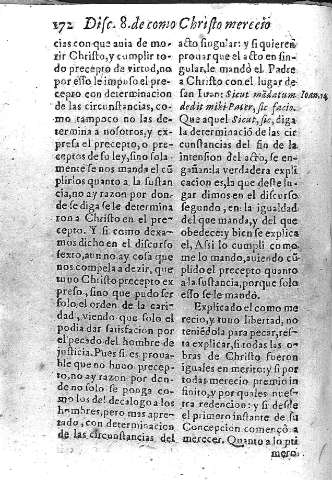 172 Disc. 8. de como Christo merecio
cias con que auia de mo-
rir Christo, y cumplir to-
do precepto de virtud, no
por esso le impuso el pre-
cepto con determinacion
de las circunstancias, co-
mo tampoco no las de-
termina a nosotros, y ex-
presa el precepto, o pre-
ceptos de su ley, sino sola-
mente se nos manda el cũ-
plirlos quanto a la sustan-
cia, no ay razon por don-
de se diga se le determina
ron a Christo en el pre-
cepto. Y si como dexa-
mos dicho en el discurso
sexto, aun no ay cosa que
nos compela a dezir, que
tuuo Christo precepto ex
preso, sino que pudo ser
solo el orden de la cari-
dad, viendo que solo el
podia dar satisfacion por
el pecado del hombre de
justicia. Pues si es proua-
ble que no huuo precep-
to, no ay razon por don-
de no solo se ponga co-
mo los del decalogo a los
hombres, pero mas apre-
tado, con determinacion
de las circunstancias del
acto singular: y si quieren
prouar que el acto en sin-
gular, le mandò el Padre
a Christo con el lugar de
san Iuan: Sicut mãdatum
dedit mihi Pater, sic facio.
Ioan. 14.
Que aquel Sicut, sic, diga
la determinacion de las cir
cunstancias del fin de la
intension del acto, se en-
gañan: la verdadera expli
cacion es, la que deste lu-
gar dimos en el discurso
segundo, en la igualdad
del que manda, y del que
obedece: y bien se explica
el, Assi lo cumpli como
me lo mando, auiendo cũ
plido el precepto quanto
a la sustancia, porque solo
esso se le mandò.
Explicado el como me
recio, y tuuo libertad, no
teniẽdola para pecar, res-
ta explicar, si todas las o-
bras de Christo fueron
iguales en merito: y si por
todas merecio premio in
finito, y por quales nues-
tra redencion: y si desde
el primero instante de su
Concepcion començò a
merecer. Quanto a lo pri
mero